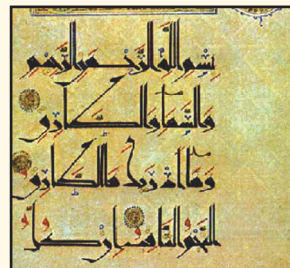 بسم الله الرحمن الرحيم
والسماء والطارق
وما أدريك ما الطارق
النجم الثاقب إن كل